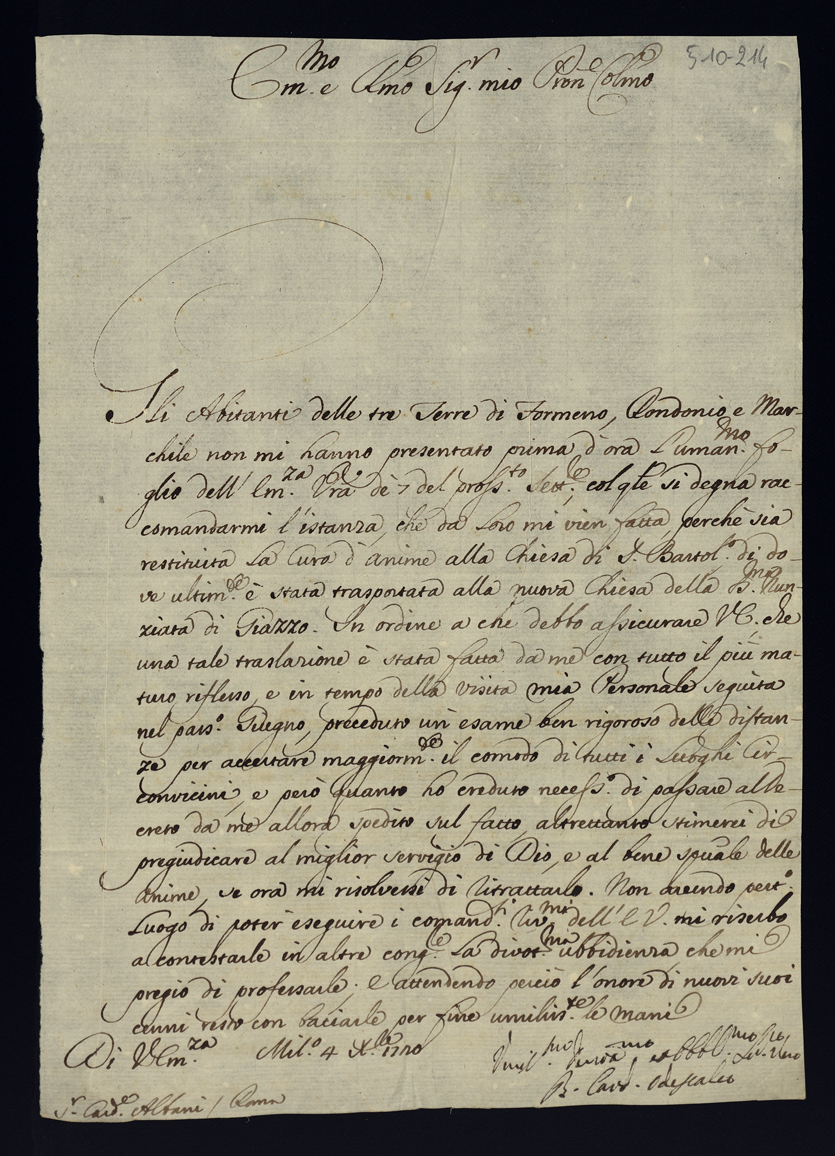 5-10-214
Em.mo e Rmo Sig.r mio Pron.e Colmo
Gli Abitanti delle tre Terre di Formeno, Rondonio, e Mar-
chile non mi hanno presentato prima d'ora l'uman.mo fo-
glio dell' Em.za Vra de 7 del pross.to Sett.e, col qle si degna rac-
comandarmi l'istanza, che da loro mi vien fatta, perchè sia
restituita la Cura d'anime alla Chiesa di S. Bartol.o di do-
ve ultim.te è stata trasportata alla nuova Chiesa della B.ma Nun-
ziata di Giazzo. In ordine a che debbo assicurare V.E. che
una tale traslazione è stata fatta da me con tutto il più ma-
turo riflesso, e in tempo della visita mia Personale seguita
nel pass.o Giugno, preceduto un' esame ben rigoroso delle distan-
ze per accertare maggiorm.te il comodo di tutti i Luoghi Cir-
convicini, e però quanto ho creduto necess.o di passare al De-
creto da me allora spedito sul fatto, altrettanto stimerei di
pregiudicare al miglior servigio di Dio, e al bene spuale delle
anime, se ora mi risolvessi di ritrattarlo. Non avendo pert.o
luogo di poter eseguire i comand.ti riv.mi dell' E.V. mi riserbo
a contestarle in altre cong.e la divot.ma ubbidienza che mi
pregio di professarle; e attendendo perciò l'onore di nuovi suoi
cenni resto con baciarle per fine umiliss.te le mani
Di V. Em.za Mil.o 4 X.bre 1720
Umil.mo Devot.mo, ed Obbl.mo Ser. Vero
B. Card. Odescalco
S.r Card.e Albani / Roma